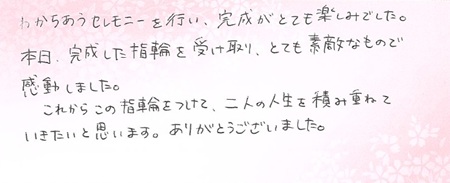 わからあうセレモニーを行い、完成がとても楽しみでした。
本日、完成した指輪を受け取り、とても素敵なもので
感動しました。
これからこの指輪をつけて、二人の人生を積み重ねて
いきたいと思います。ありがとうございました。